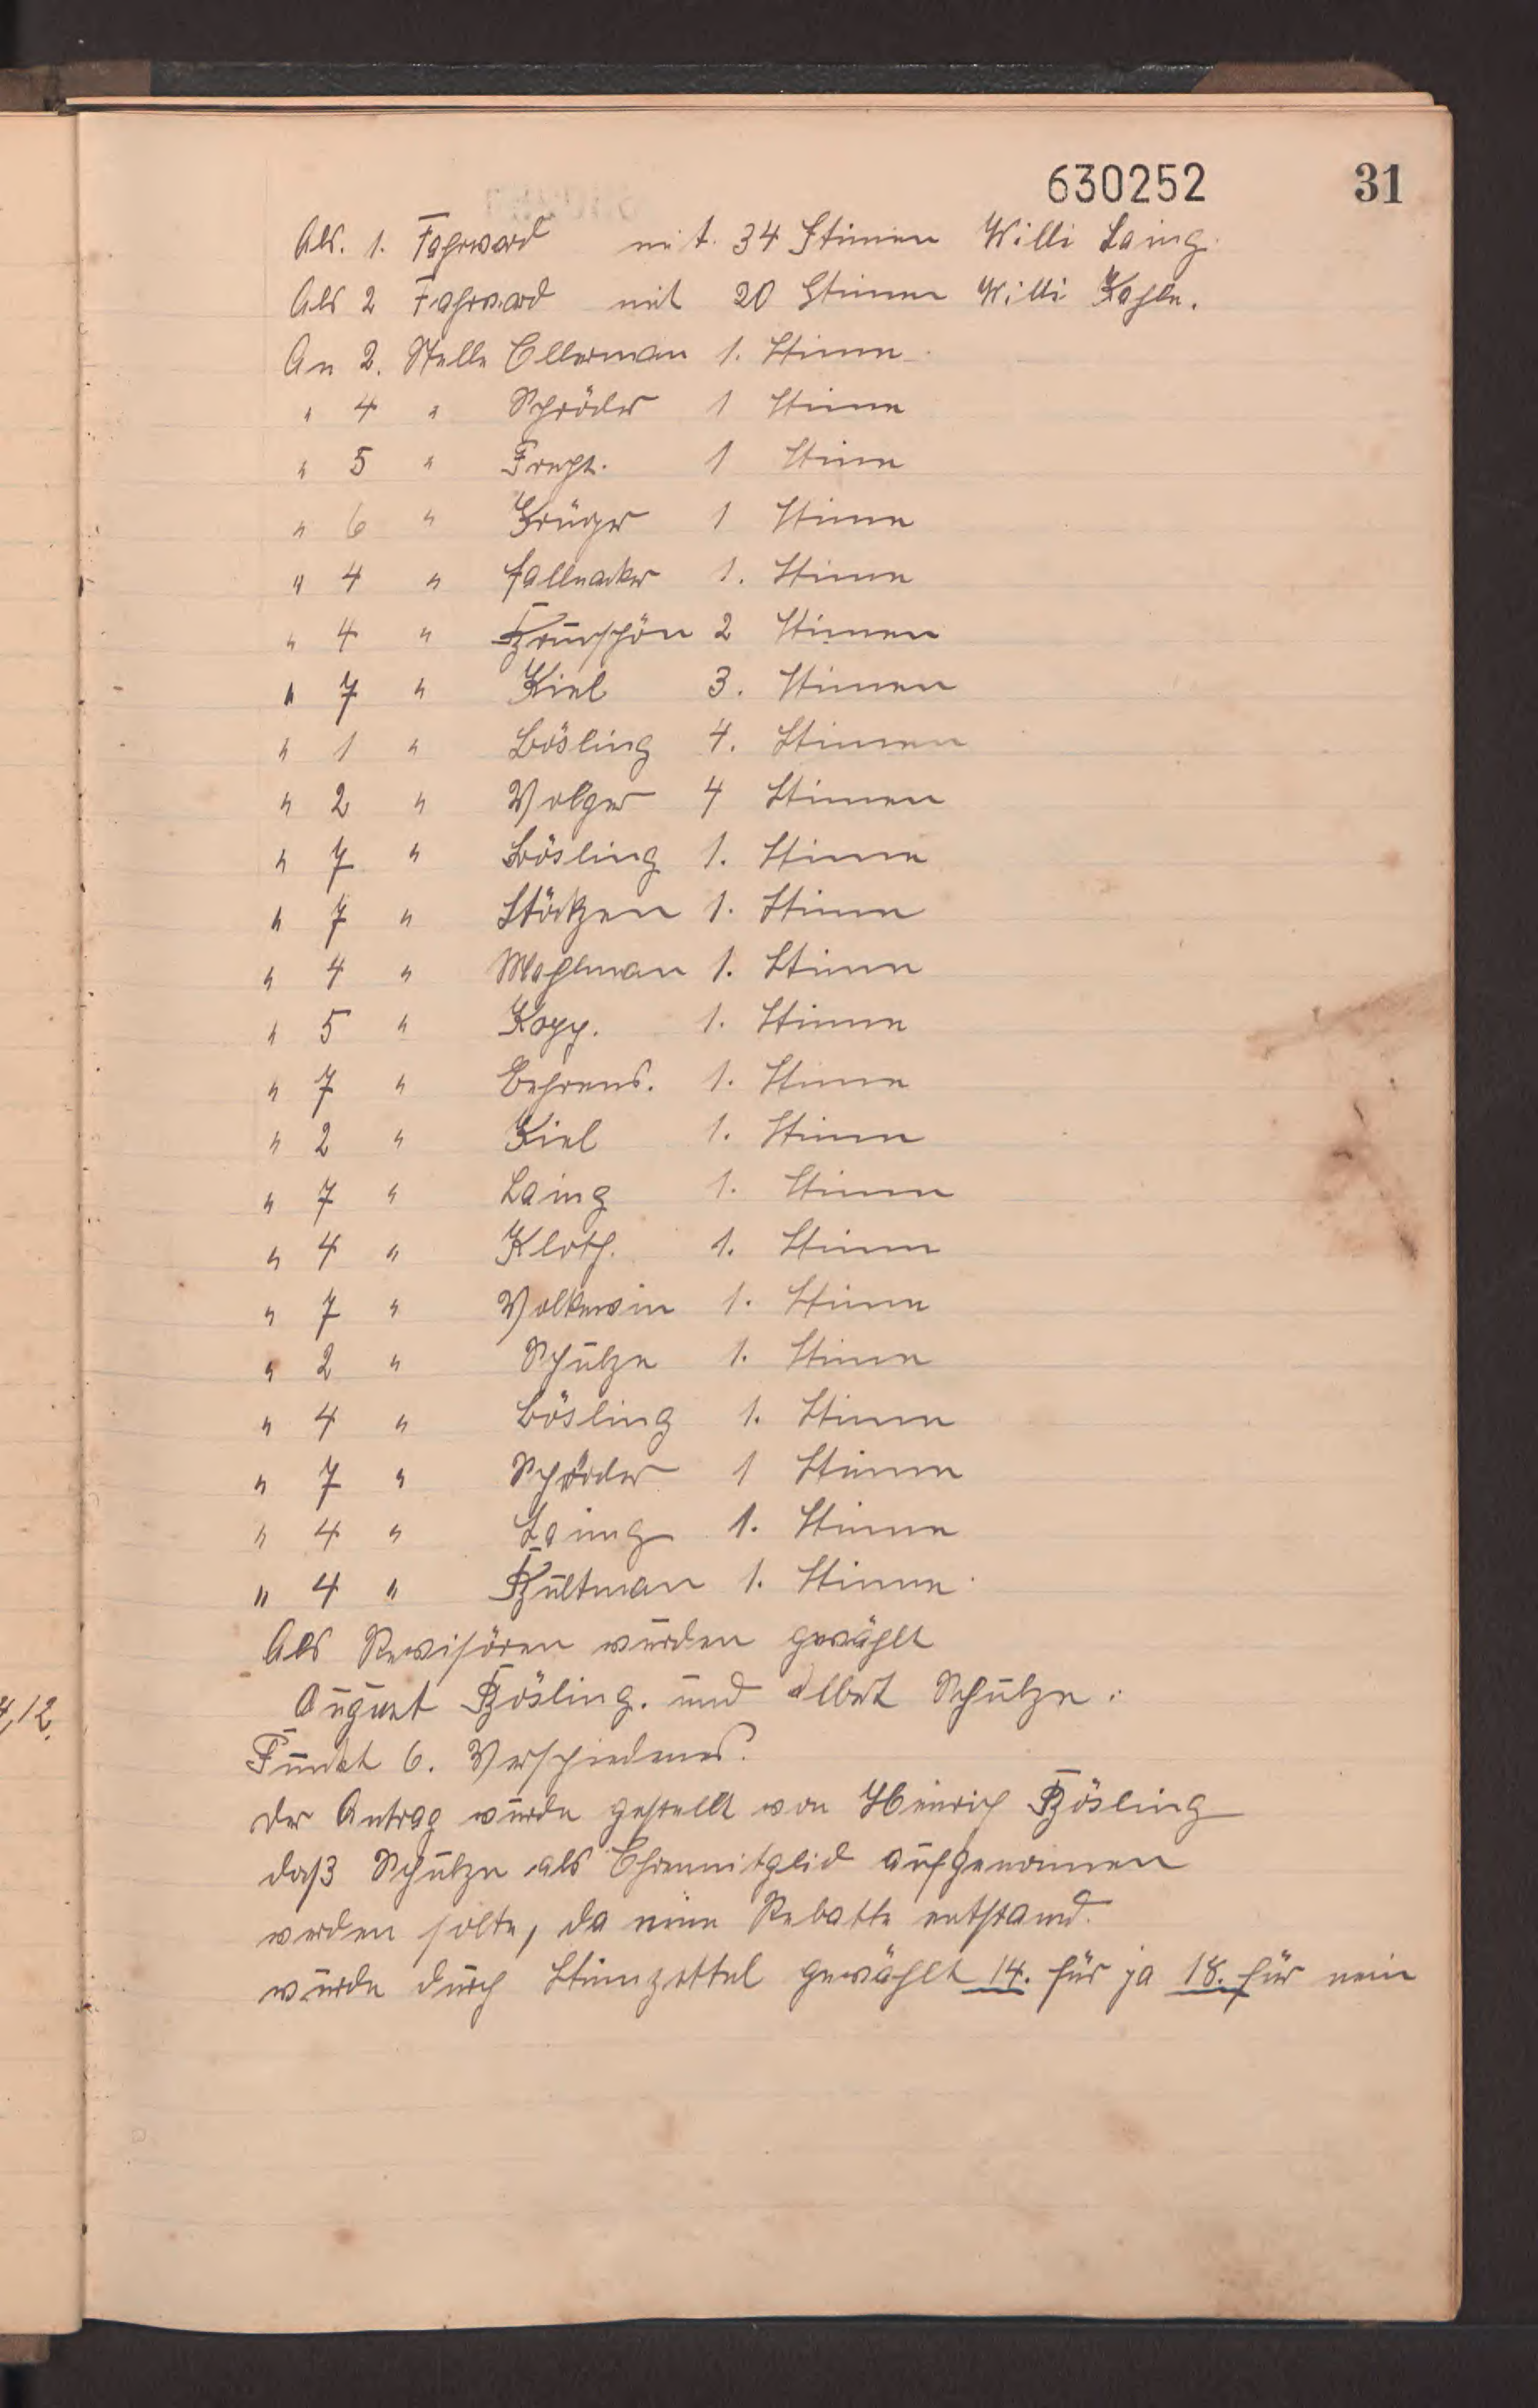 630252 31
Als. 1. Fahrward mit. 34 Stimmen Willi Laing.
Als 2 Fahrward mit 20 Stimmen Willi Kahle.
An 2. Stelle Ellerman 1. Stimme.
" 4 " Schröder 1 Stimme
" 5 " 1 Stimme
" 6 " Krüger 1 Stimme
" 4 " Fallnacker 1. Stimme
" 4 " 2 Stimmen
" 7 " Kiel 3. Stimmen
" 1 " Bösling 4. Stimmen
" 2 " Volger 4 Stimmen
" 7 " Bösling 1. Stimme
" 7 " 1. Stimme
" 4 " Mahlman 1. Stimme
" 5 " Kopp. 1. Stimme
" 7 " Behrens. 1. Stimme
" 2 " Kiel 1. Stimme
" 7 " Laing 1. Stimme
" 4 " Kloth. 1. Stimme
" 7 " Volkewin 1. Stimme
" 2 " Schulze 1. Stimme
" 4 " Bösling 1. Stimme
" 7 " Schröder 1 Stimme
" 4 " Laing 1. Stimme
" 4 " Bültman 1. Stimme.
Als Revisören wurden gewählt
August Bösling. und Albert Schulze.
Punkt 6. Verschiedenes.
Der Antrag wurde gestellt von Heinrich Bösling
daß Schulze als Ehrenmitglied aufgenommen
werden solte, da eine Debatte entstand.
wurde durch Stimmzettel gewählt 14. für ja 18. für nein
4,12.